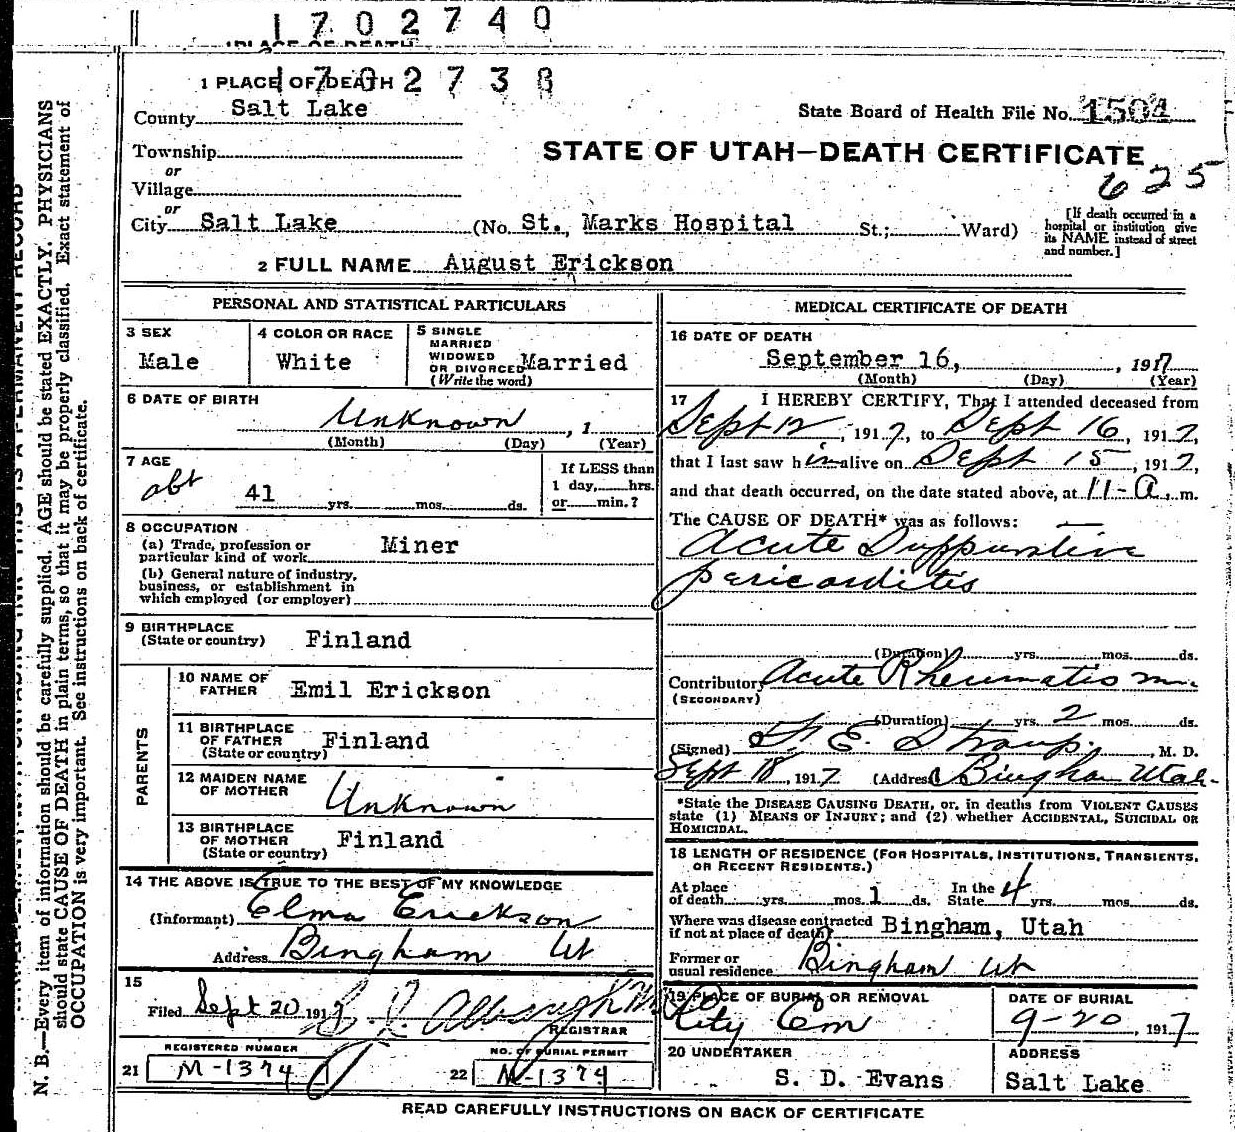 1702740
1 PLACE OF DEATH 1702738
County Salt Lake
State Board of Health File No. 1504
Township
STATE OF UTAH—DEATH CERTIFICATE
or
Village
625
or
City Salt Lake (No. St., Marks Hospital St.; Ward)
[If death occurred in a
hospital or institution give
its NAME instead of street
and number.]
2 FULL NAME August Erickson
PERSONAL AND STATISTICAL PARTICULARS
3 SEX
Male
4 COLOR OR RACE
White
5 SINGLE
MARRIED
WIDOWED
OR DIVORCED Married
(Write the word)
6 DATE OF BIRTH
Unknown , 1
(Month) (Day) (Year)
7 AGE
abt 41 yrs. mos. ds.
If LESS than
1 day, hrs.
or min.?
8 OCCUPATION
(a) Trade, profession or
particular kind of work Miner
(b) General nature of industry,
business, or establishment in
which employed (or employer)
9 BIRTHPLACE
(State or country) Finland
PARENTS
10 NAME OF
FATHER Emil Erickson
11 BIRTHPLACE
OF FATHER
(State or country) Finland
12 MAIDEN NAME
OF MOTHER Unknown
13 BIRTHPLACE
OF MOTHER
(State or country) Finland
14 THE ABOVE IS TRUE TO THE BEST OF MY KNOWLEDGE
(Informant) Elma Erickson
Address Bingham Ut
15
Filed Sept 20 1917
REGISTRAR
REGISTERED NUMBER
21 M-1374
NO. OF BURIAL PERMIT
22 M-1374
MEDICAL CERTIFICATE OF DEATH
16 DATE OF DEATH
September 16, , 1917
(Month) (Day) (Year)
17 I HEREBY CERTIFY, That I attended deceased from
Sept 12, 1917, to Sept 16, 1917,
that I last saw him alive on Sept 15, 1917,
and that death occurred, on the date stated above, at 11-A. m.
The CAUSE OF DEATH* was as follows:
Acute Suppurative
pericarditis
(Duration) yrs. mos. ds.
Contributory Acute Rheumatism
(SECONDARY)
(Duration) yrs. 2 mos. ds.
(Signed) F. E. Straup. M. D.
Sept 18, 1917 (Address) Bingham Utah
*State the DISEASE CAUSING DEATH, or, in deaths from VIOLENT CAUSES
state (1) MEANS OF INJURY; and (2) whether ACCIDENTAL, SUICIDAL OR
HOMICIDAL.
18 LENGTH OF RESIDENCE (FOR HOSPITALS, INSTITUTIONS, TRANSIENTS,
OR RECENT RESIDENTS.)
At place
of death yrs. mos. 1 ds.
In the
State 4 yrs. mos. ds.
Where was disease contracted
if not at place of death? Bingham, Utah
Former or
usual residence Bingham Ut
19 PLACE OF BURIAL OR REMOVAL
City Cem
DATE OF BURIAL
9-20, 1917
20 UNDERTAKER
S. D. Evans
ADDRESS
Salt Lake
READ CAREFULLY INSTRUCTIONS ON BACK OF CERTIFICATE
N. B.—Every item of information should be carefully supplied. AGE should be stated EXACTLY. PHYSICIANS
should state CAUSE OF DEATH in plain terms, so that it may be properly classified. Exact statement of
OCCUPATION is very important. See instructions on back of certificate.